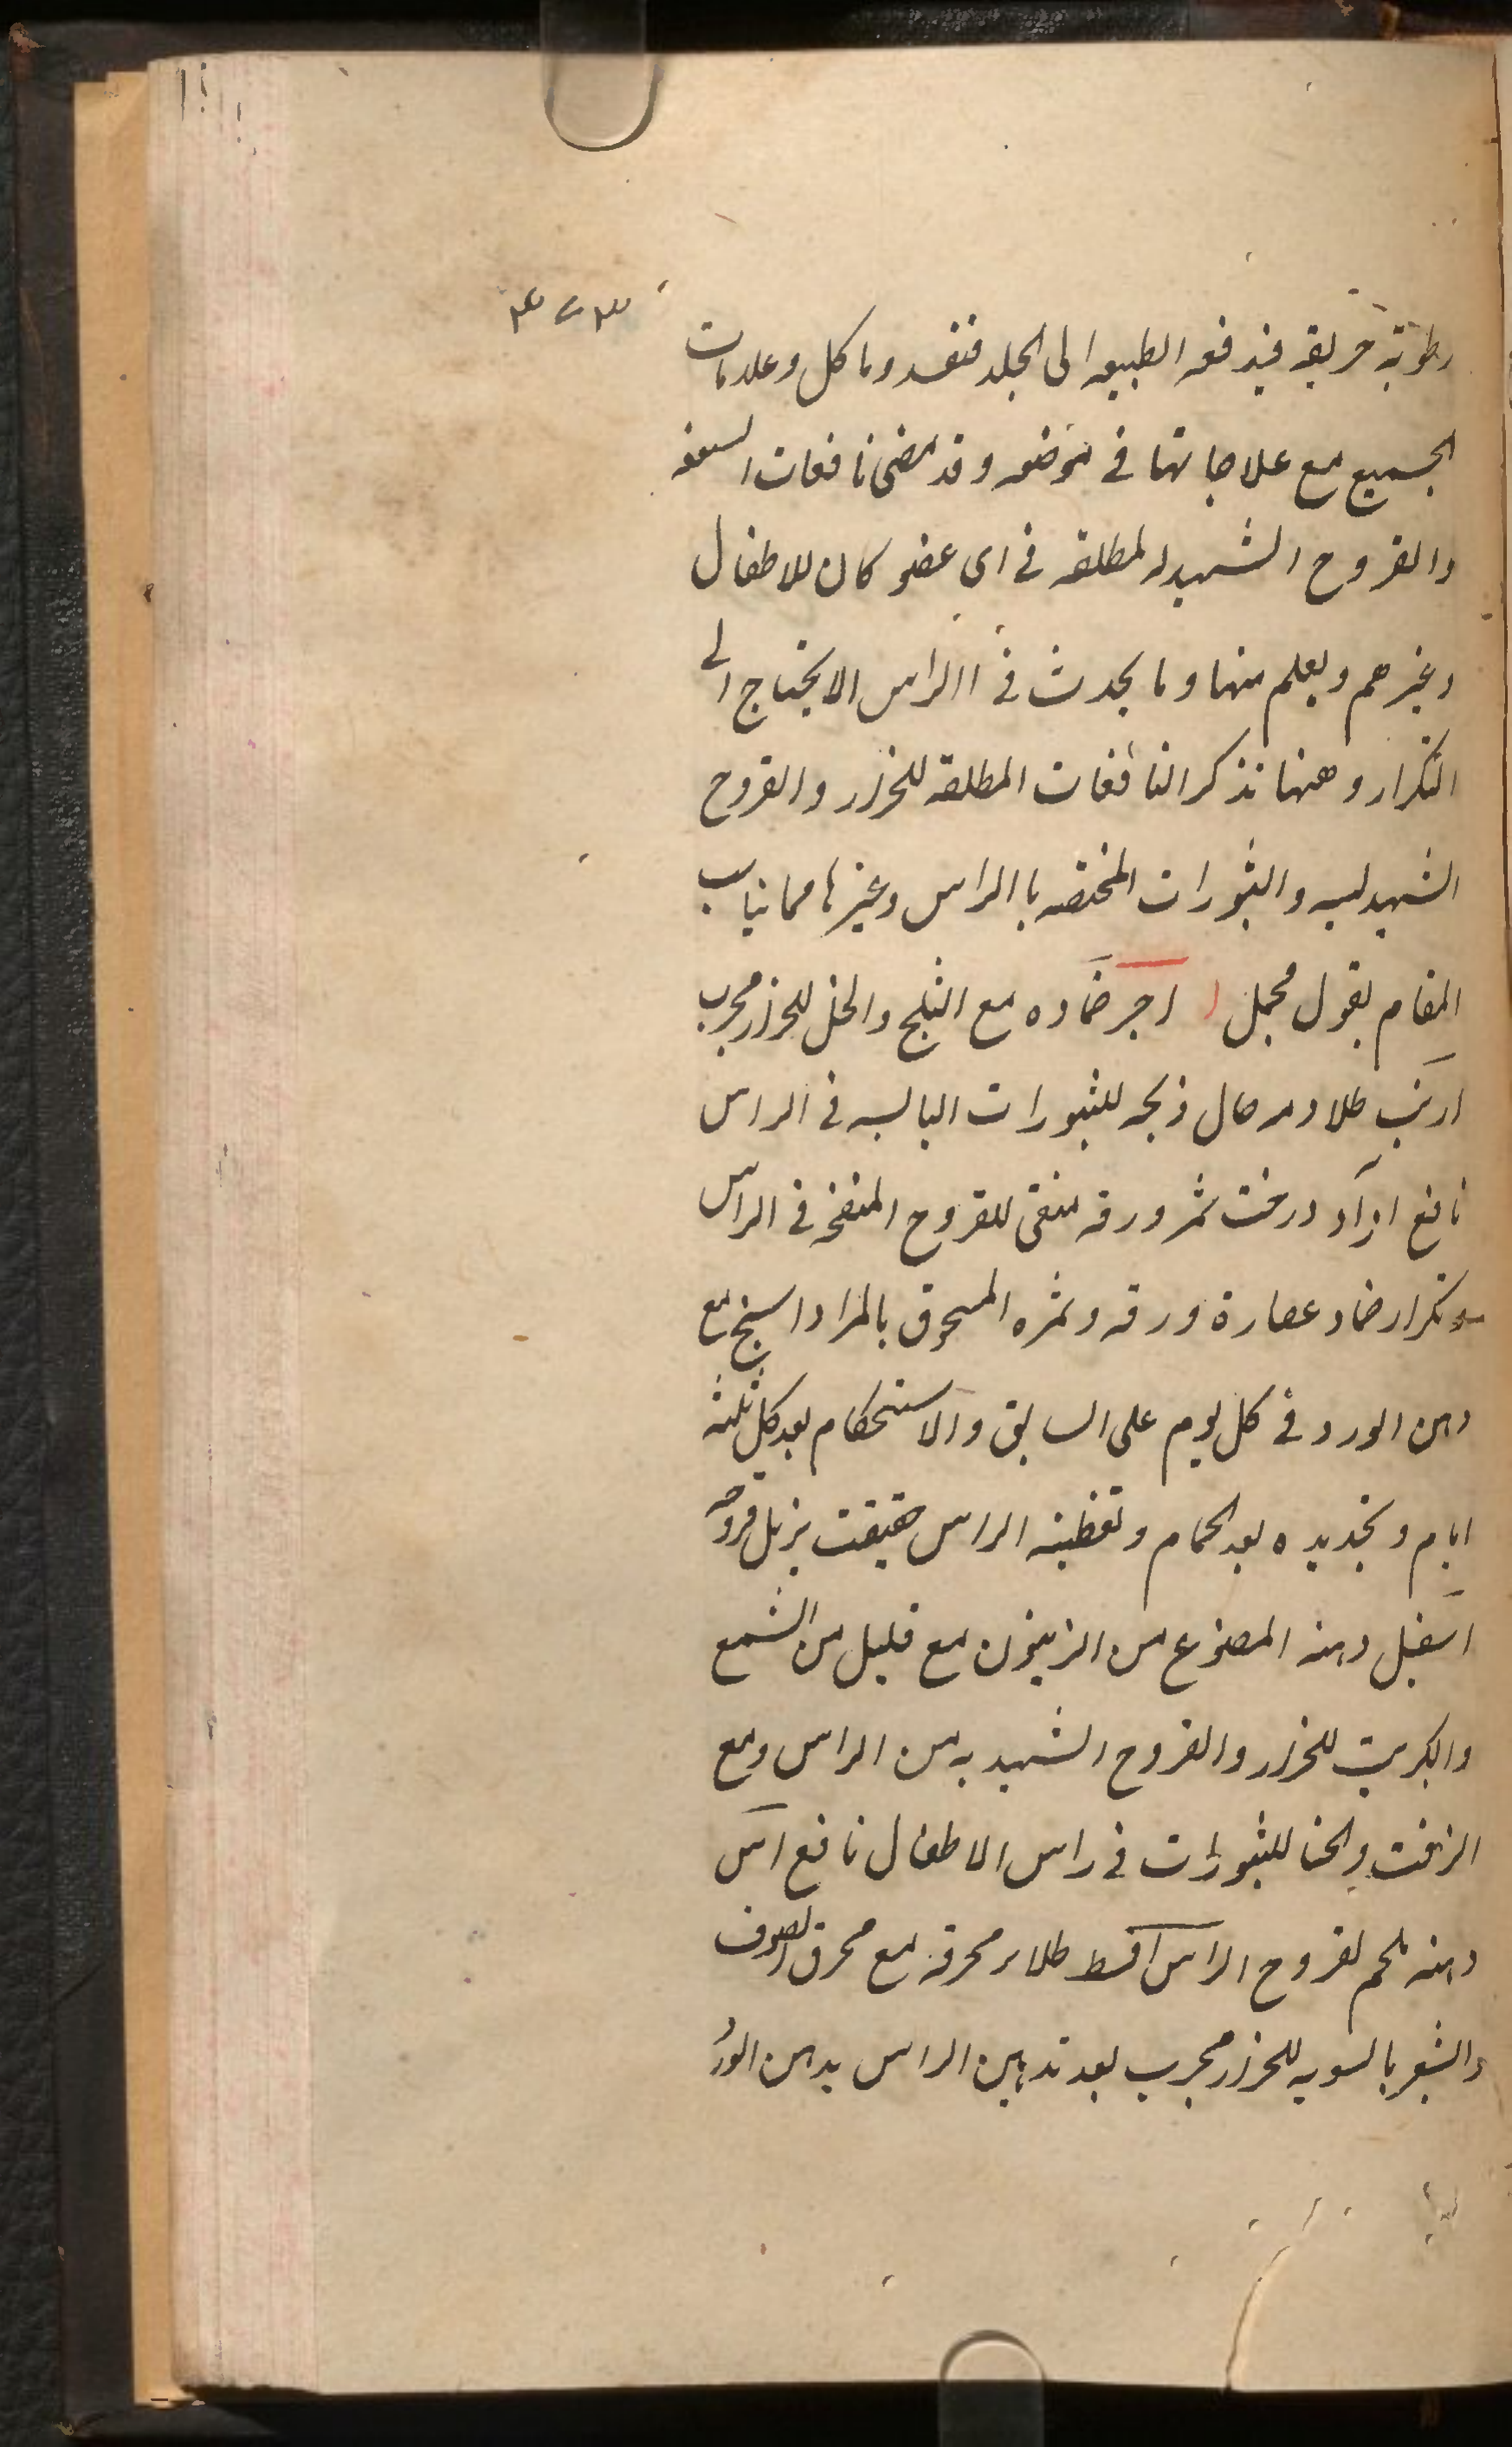 ۴۷۳
رطوبة حريفة فيدفعه الطبيعه الى الجلد فتفسد وتاكل وعلامات
الجميع مع علاجاتها في موضعه وقد مضى نافعات السعفه
والقروح الشهديه المطلقه في اى عضو كان للاطفال
وغيرهم ويعلم منها وما يحدث في االراس لا يحتاج الى
التكرار وههنا نذكر النافعات المطلقة للحزاز والقروح
الشهديه والبثورات المختصه باالراس وغيرها مما يناسب
المقام بقول مجمل اجر ضماده مع الثلج والخل للحزاز مجرب
ارنب طلا دمه حال ذبحه للبثورات اليابسه في الراس
نافع ازاد درخت ثمر ورقه منقى للقروح المتقحه في الراس
وتكرار ضماد عصارة ورقه وثمره المسحوق بالمرداسنج مع
دهن الورد في كل يوم على السابق والاستحكام بعد كل ثلثة
ايام وتجديده بعد الحمام وتغطية الراس حقيقت يزيل قروحه
اسقيل دهنه المصنوع من الزيتون مع قليل من الشمع
والكبريت للحزاز والقروح الشهديه من الراس ومع
الزفت والحنا للبثورات في راس الاطفال نافع اس
دهنه ملحم لقروح الراس اقسط طلاء محرقه مع محرق الصوف
والشعر بالسويه للحزاز مجرب بعد تدهين الراس بدهن الورد